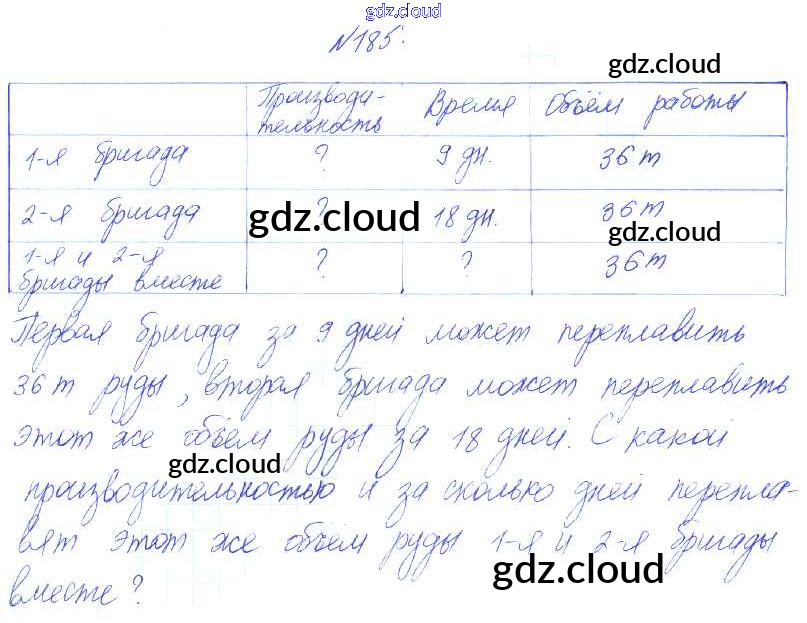 gdz.cloud
№185.
gdz.cloud
Производи- Время Объём работы
тельность
1-я бригада ? 9 дн. 36 т
2-я бригада ? 18 дн. 36 т
gdz.cloud
gdz.cloud
1-я и 2-я ? ? 36 т
бригады вместе
Первая бригада за 9 дней может переплавить
36 т руды, вторая бригада может переплавить
этот же объём руды за 18 дней. С какой
gdz.cloud
производительностью и за сколько дней перепла-
вят этот же объём руды 1-я и 2-я бригады
gdz.cloud
вместе?